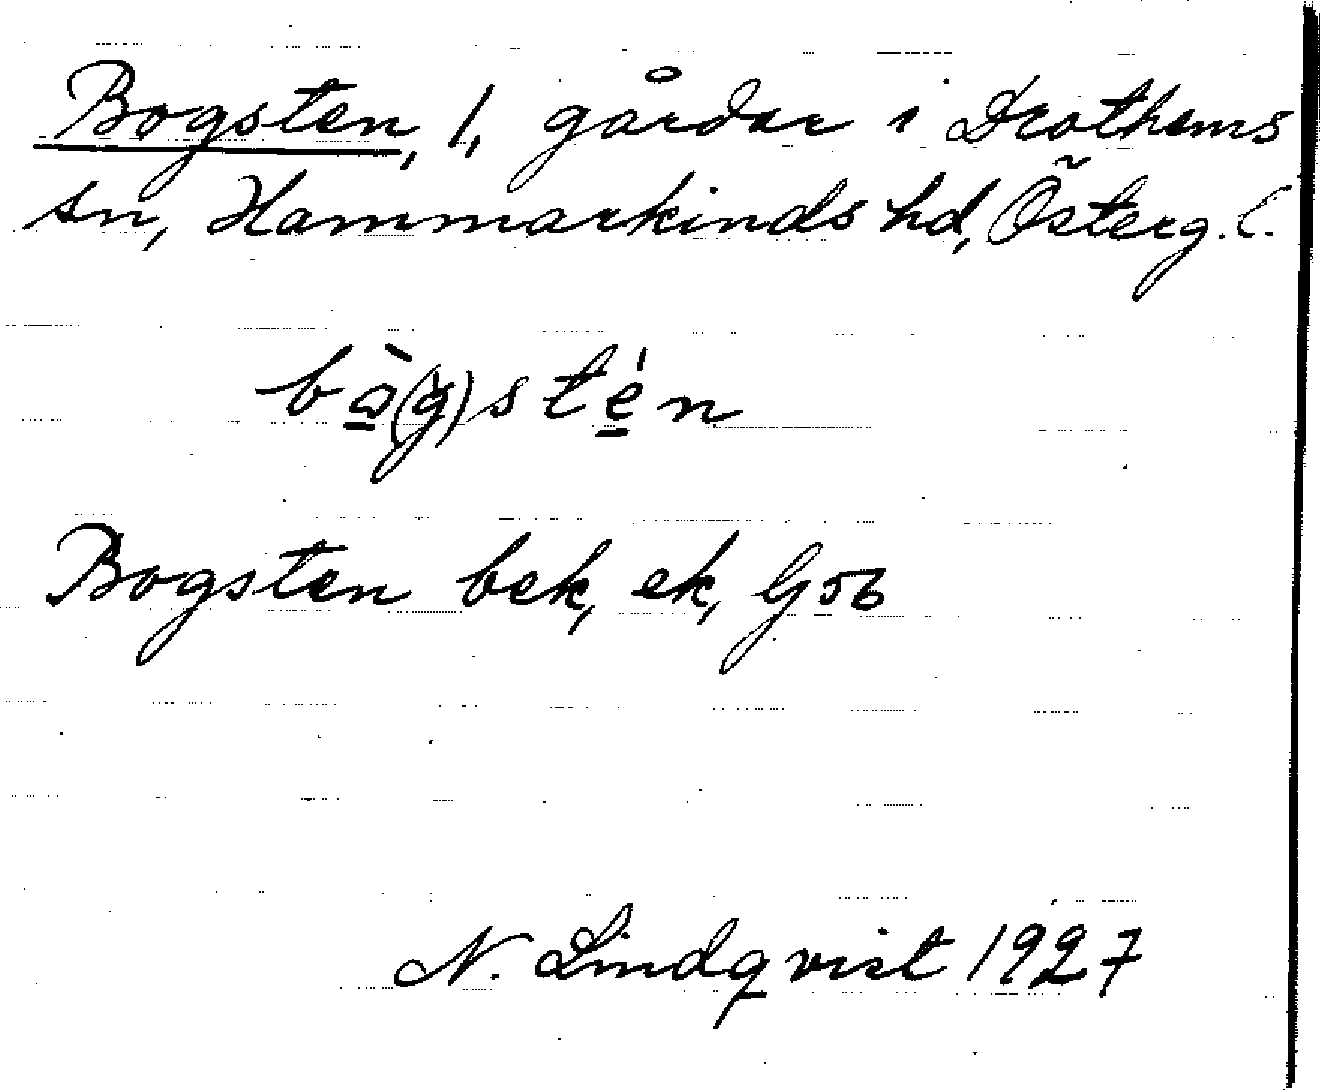 Bogsten, 1, gårdar i Drothems
sn, Hammarkinds hd, Österg. l.
bò̱(g)sté̱n
Bogsten bek, ek, G 56
N. Lindqvist 1927